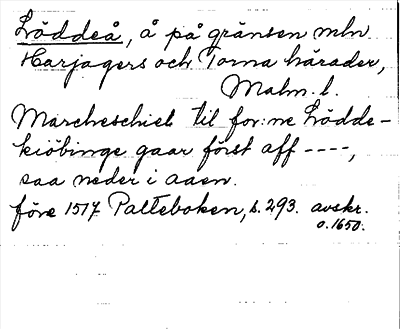 Löddeå, å på gränsen mln
Harjagers och Torna härader,
Malm. l.
Marcheschiel til for:ne Lödde-
kiöbinge gaar först aff ----,
saa neder i aaen.
före 1517 Palteboken, s. 293. avskr.
o. 1650.